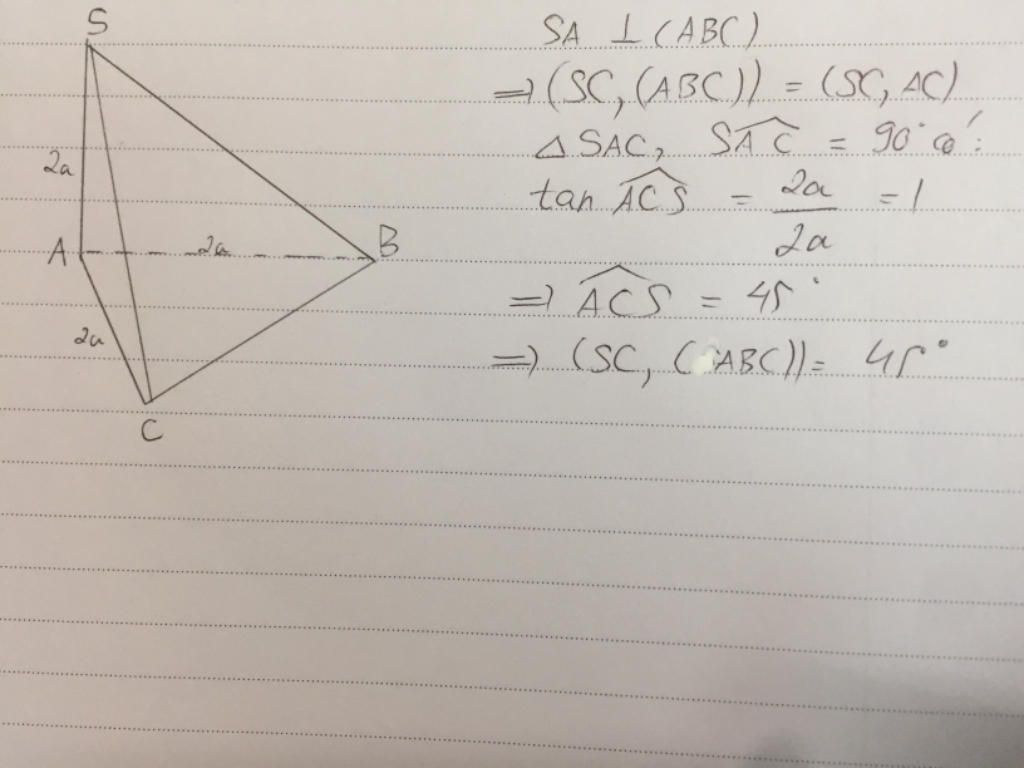 S
2a
A
2a
B
2a
C
SA ⊥ (ABC)
⇒ (SC, (ABC)) = (SC, AC)
△ SAC, \widehat{SAC} = 90° có:
tan \widehat{ACS} = \frac{2a}{2a} = 1
⇒ \widehat{ACS} = 45°
⇒ (SC, (ABC)) = 45°